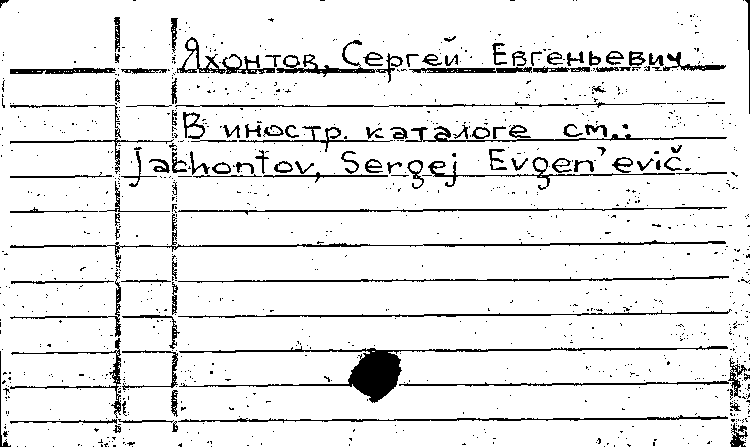 Яхонтов, Сергей Евгеньевич.
В иностр. каталоге см.:
Jachontov, Sergej Evgen'evič.